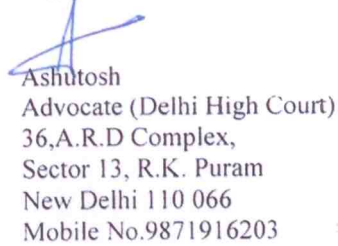 Ashutosh
Advocate (Delhi High Court)
36,A.R.D Complex,
Sector 13, R.K. Puram
New Delhi 110 066
Mobile No.9871916203